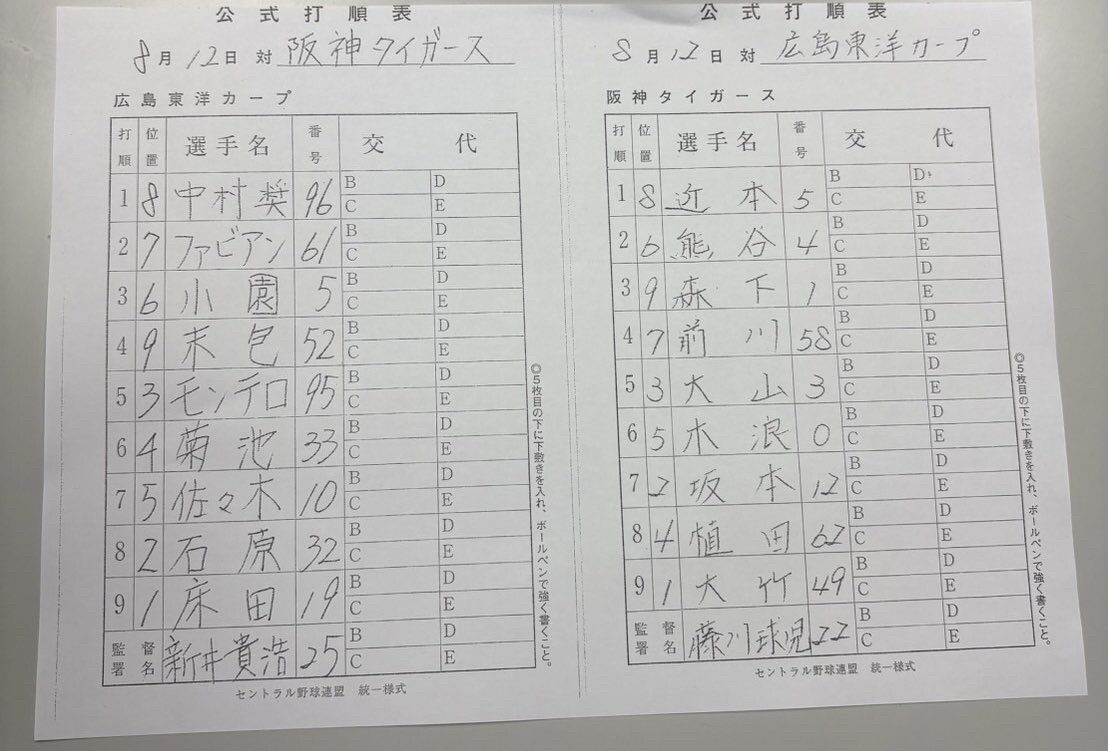 公式打順表
8月12日 対 阪神タイガース
広島東洋カープ
打順 位置 選手名 番号 交代
1 8 中村奨 96 B D C E
2 7 ファビアン 61 B D C E
3 6 小園 5 B D C E
4 9 末包 52 B D C E
5 3 モンテロ 95 B D C E
6 4 菊池 33 B D C E
7 5 佐々木 10 B D C E
8 2 石原 32 B D C E
9 1 床田 19 B D C E
監督署名 新井貴浩 25 B D C E
◎5枚目の下に下敷きを入れ、ボールペンで強く書くこと。
セントラル野球連盟 統一様式
公式打順表
8月12日 対 広島東洋カープ
阪神タイガース
打順 位置 選手名 番号 交代
1 8 近本 5 B D C E
2 6 熊谷 4 B D C E
3 9 森下 1 B D C E
4 7 前川 58 B D C E
5 3 大山 3 B D C E
6 5 木浪 0 B D C E
7 2 坂本 12 B D C E
8 4 植田 62 B D C E
9 1 大竹 49 B D C E
監督署名 藤川球児 22 B D C E
◎5枚目の下に下敷きを入れ、ボールペンで強く書くこと。
セントラル野球連盟 統一様式